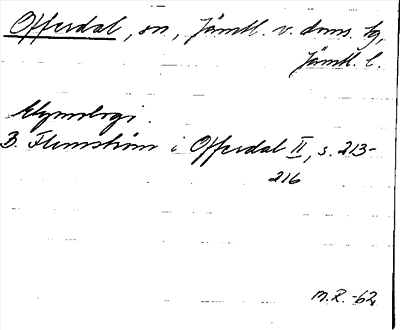 Offerdal, sn, Jämtl. v. doms. tg,
Jämtl. l.
Etymologi.
B. Flemström i Offerdal II, s. 213-
216
M.R. -62